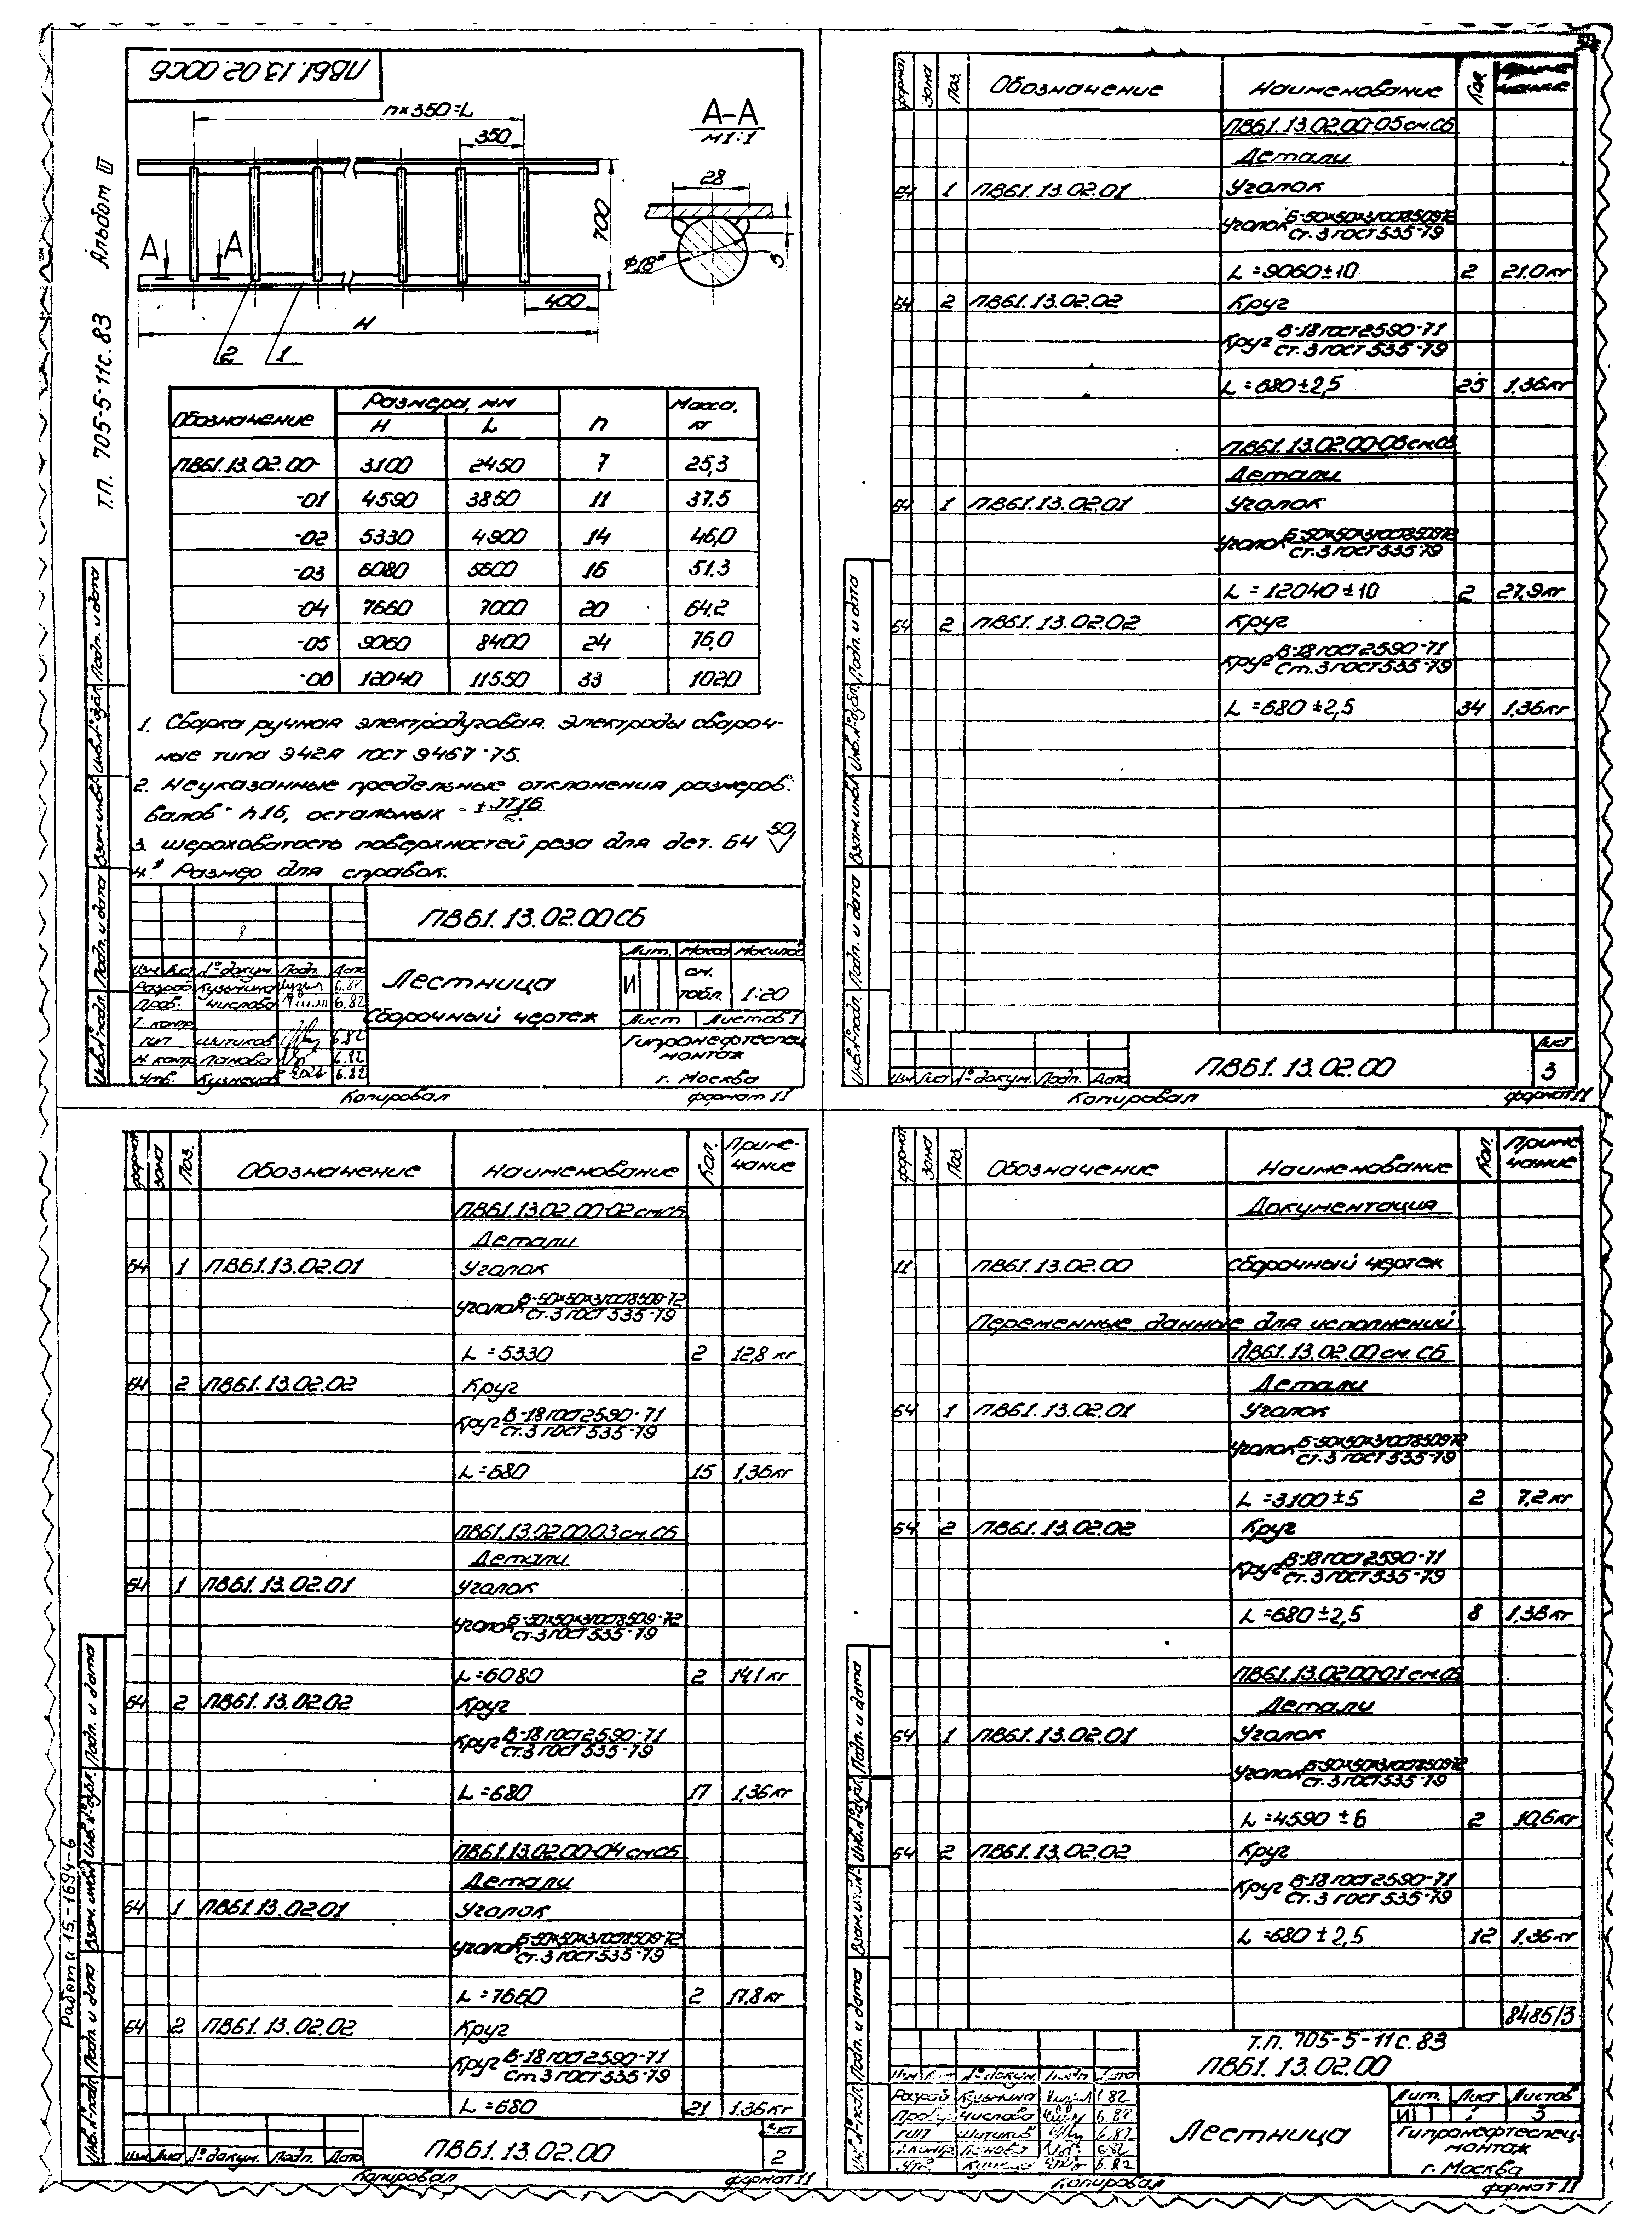 ПВ61.13.02.00СБ
Альбом III
Т.П. 705-5-11с.83
n×350=L
350
700
А А
400
H
2 1
А-А
М1:1
28
φ18*
5
Обозначение Размеры, мм n Масса, кг
H L
ПВ61.13.02.00- 3100 2450 7 25,3
-01 4590 3850 11 37,5
-02 5330 4900 14 46,0
-03 6080 5600 16 51,3
-04 7660 7000 20 64,2
-05 9060 8400 24 76,0
-06 12040 11550 33 1020
1. Сварка ручная электродуговая. Электроды свароч-
ные типа Э42А ГОСТ 9467-75.
2. Неуказанные предельные отклонения размеров:
валов - h16, остальных - ± IT16/2.
3. Шероховатость поверхностей реза для дет. БЧ 50
4.* Размер для справок.
ПВ61.13.02.00СБ
Лестница
Сборочный чертеж
Лит. Масса Масштаб
И см. табл. 1:20
Лист Листов 1
Гипронефтеспец
монтаж
г. Москва
Изм Лист № докум. Подп. Дата
Разраб Кузьмина 6.82
Пров. Числова 6.82
Т. контр
ГИП Шитиков 6.82
Н. контр Панова 6.82
Утв. 6.82
Копировал формат 11
Инв.№ подл. Подп. и дата Взам.инв№ Инв.№ дубл. Подп. и дата
формат зона Поз. Обозначение Наименование Кол.
ПВ61.13.02.00-05 см.СБ
Детали
БЧ 1 ПВ61.13.02.01 Уголок
Уголок Б-50×50×3 ГОСТ 8509-72
Ст.3 ГОСТ 535-79
L=9060±10 2 21.0кг
БЧ 2 ПВ61.13.02.02 Круг
Круг В-18 ГОСТ 2590-71
Ст.3 ГОСТ 535-79
L=680±2,5 25 1.36кг
ПВ61.13.02.00-06 см.СБ
Детали
БЧ 1 ПВ61.13.02.01 Уголок
Уголок Б-50×50×3 ГОСТ 8509-72
Ст.3 ГОСТ 535-79
L=12040±10 2 27,9кг
БЧ 2 ПВ61.13.02.02 Круг
Круг В-18 ГОСТ 2590-71
Ст.3 ГОСТ 535-79
L=680±2,5 34 1,36кг
Изм Лист № докум. Подп. Дата
ПВ61.13.02.00
Лист
3
Копировал формат 11
Инв.№ подл. Подп. и дата Взам.инв№ Инв.№ дубл. Подп. и дата
формат зона Поз. Обозначение Наименование Кол. Приме-
чание
ПВ61.13.02.00-02 см СБ
Детали
БЧ 1 ПВ61.13.02.01 Уголок
Уголок Б-50×50×3 ГОСТ 8509-72
Ст.3 ГОСТ 535-79
L=5330 2 12,8 кг
БЧ 2 ПВ61.13.02.02 Круг
Круг В-18 ГОСТ 2590-71
Ст.3 ГОСТ 535-79
L=680 15 1,36кг
ПВ61.13.02.00-03 см.СБ
Детали
БЧ 1 ПВ61.13.02.01 Уголок
Уголок Б-50×50×3 ГОСТ 8509-72
Ст.3 ГОСТ 535-79
L=6080 2 14,1 кг
БЧ 2 ПВ61.13.02.02 Круг
Круг В-18 ГОСТ 2590-71
Ст.3 ГОСТ 535-79
L=680 17 1,36кг
ПВ61.13.02.00-04 см СБ
Детали
БЧ 1 ПВ61.13.02.01 Уголок
Уголок Б-50×50×3 ГОСТ 8509-72
Ст.3 ГОСТ 535-79
L=7660 2 17,8 кг
БЧ 2 ПВ61.13.02.02 Круг
Круг В-18 ГОСТ 2590-71
Ст 3 ГОСТ 535-79
L=680 21 1.36кг
Изм Лист № докум. Подп. Дата
ПВ61.13.02.00
Лист
2
Копировал формат 11
Инв.№ подл. Подп. и дата Взам.инв№ Инв.№ дубл. Подп. и дата
Работа 15.-1694-6
формат зона Поз. Обозначение Наименование Кол. Приме
чание
Документация
11 ПВ61.13.02.00 Сборочный чертеж
Переменные данные для исполнений
ПВ61.13.02.00 см.СБ
Детали
БЧ 1 ПВ61.13.02.01 Уголок
Уголок Б-50×50×3 ГОСТ 8509-72
Ст.3 ГОСТ 535-79
L=3100±5 2 7.2кг
БЧ 2 ПВ61.13.02.02 Круг
Круг В-18 ГОСТ 2590-71
Ст.3 ГОСТ 535-79
L=680±2,5 8 1,36кг
ПВ61.13.02.00-01 см.СБ
Детали
БЧ 1 ПВ61.13.02.01 Уголок
Уголок Б-50×50×3 ГОСТ 8509-72
Ст.3 ГОСТ 535-79
L=4590±6 2 10,6кг
БЧ 2 ПВ61.13.02.02 Круг
Круг В-18 ГОСТ 2590-71
Ст.3 ГОСТ 535-79
L=680±2,5 12 1.36кг
8485/3
Т.П. 705-5-11с.83
ПВ61.13.02.00
Лестница
Лит. Лист Листов
И 1 3
Гипронефтеспец-
монтаж
г. Москва
№ докум. Дата
Разраб Кузьмина 6.82
Пров Числова 6.82
ГИП Шитиков 6.82
Н.контр Панова 6.82
Утв. 6.82
Копировал формат 11
Инв.№ подл. Подп. и дата Взам.инв№ Инв.№ дубл. Подп. и дата